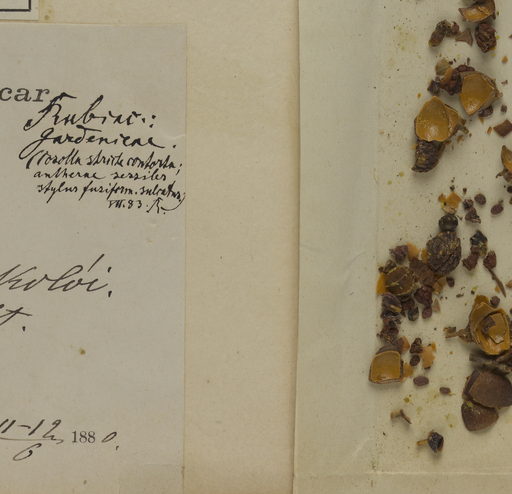 car
Rubiac.:
gardenieae.
(corolla stricte contorta;
antherae sessiles
stylus fusiform. sulcatus)
VII.83. R.
11-12/6 1880.